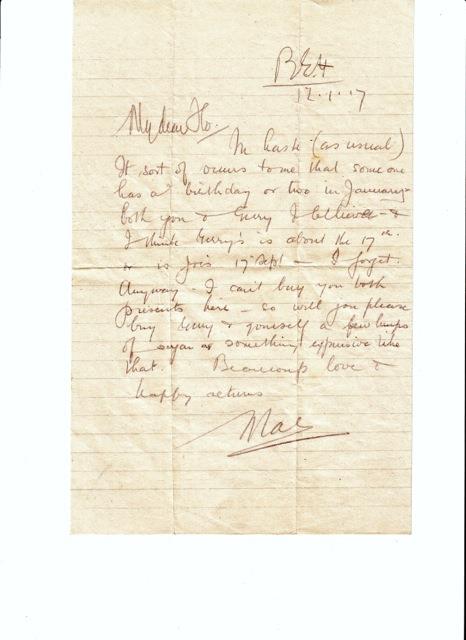 BEF
12.1.17
My dear Flo.
In haste (as usual)
It sort of occurs to me that someone
has a birthday or two in January -
both you & Gerry I believe - &
I think Gerry's is about the 17th.
or is Joe's 17 Sept - I forget.
Anyway - I can't buy you both
presents here - so will you please
buy Gerry & yourself a few lumps
of sugar or something expensive like
that. Beaucoup love &
happy returns
Mac